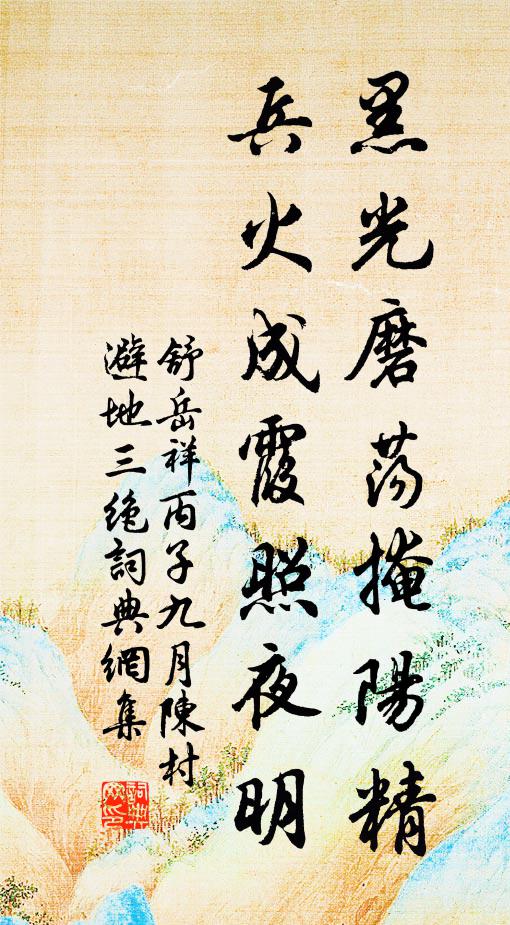 黑光磨荡掩陽精
兵火成霞照夜明
舒岳祥丙子九月陳村
避地三绝詞典網集